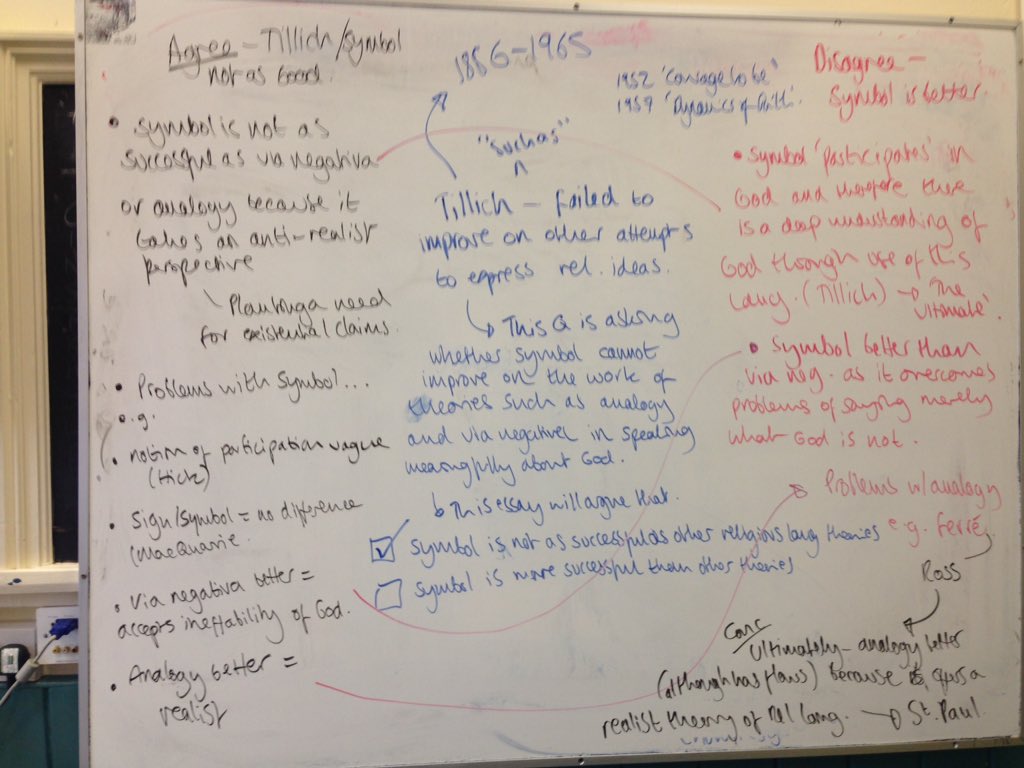 Agree - Tillich/Symbol
not as Good.
• symbol is not as
successful as via negativa
or analogy because it
takes an anti-realist
perspective
Plantinga need
for existential claims.
• Problems with symbol...
e.g.
• notion of participation vague
(Hick)
• Sign/symbol = no difference
(MacQuarrie
• via negativa better =
accepts ineffability of God.
• Analogy better =
realist
1886-1965
1952 'Courage to be'
1957 'Dynamics of Faith'.
"such as"
Tillich - failed to
improve on other attempts
to express rel. ideas.
This Q is asking
whether symbol cannot
improve on the work of
theories such as analogy
and via negativa in speaking
meaningfully about God.
This essay will argue that.
symbol is not as successful as other religious lang theories
symbol is more successful than other theories
Disagree -
Symbol is better.
• Symbol 'participates' in
God and therefore there
is a deep understanding of
God through use of this
lang. (Tillich) → 'The
Ultimate'.
• Symbol better than
via neg. as it overcomes
problems of saying merely
what God is not.
Problems w/analogy
e.g. Ferré
Ross
Conc
Ultimately - analogy better
(although has flaws) because
realist theory of rel lang. → St. Paul